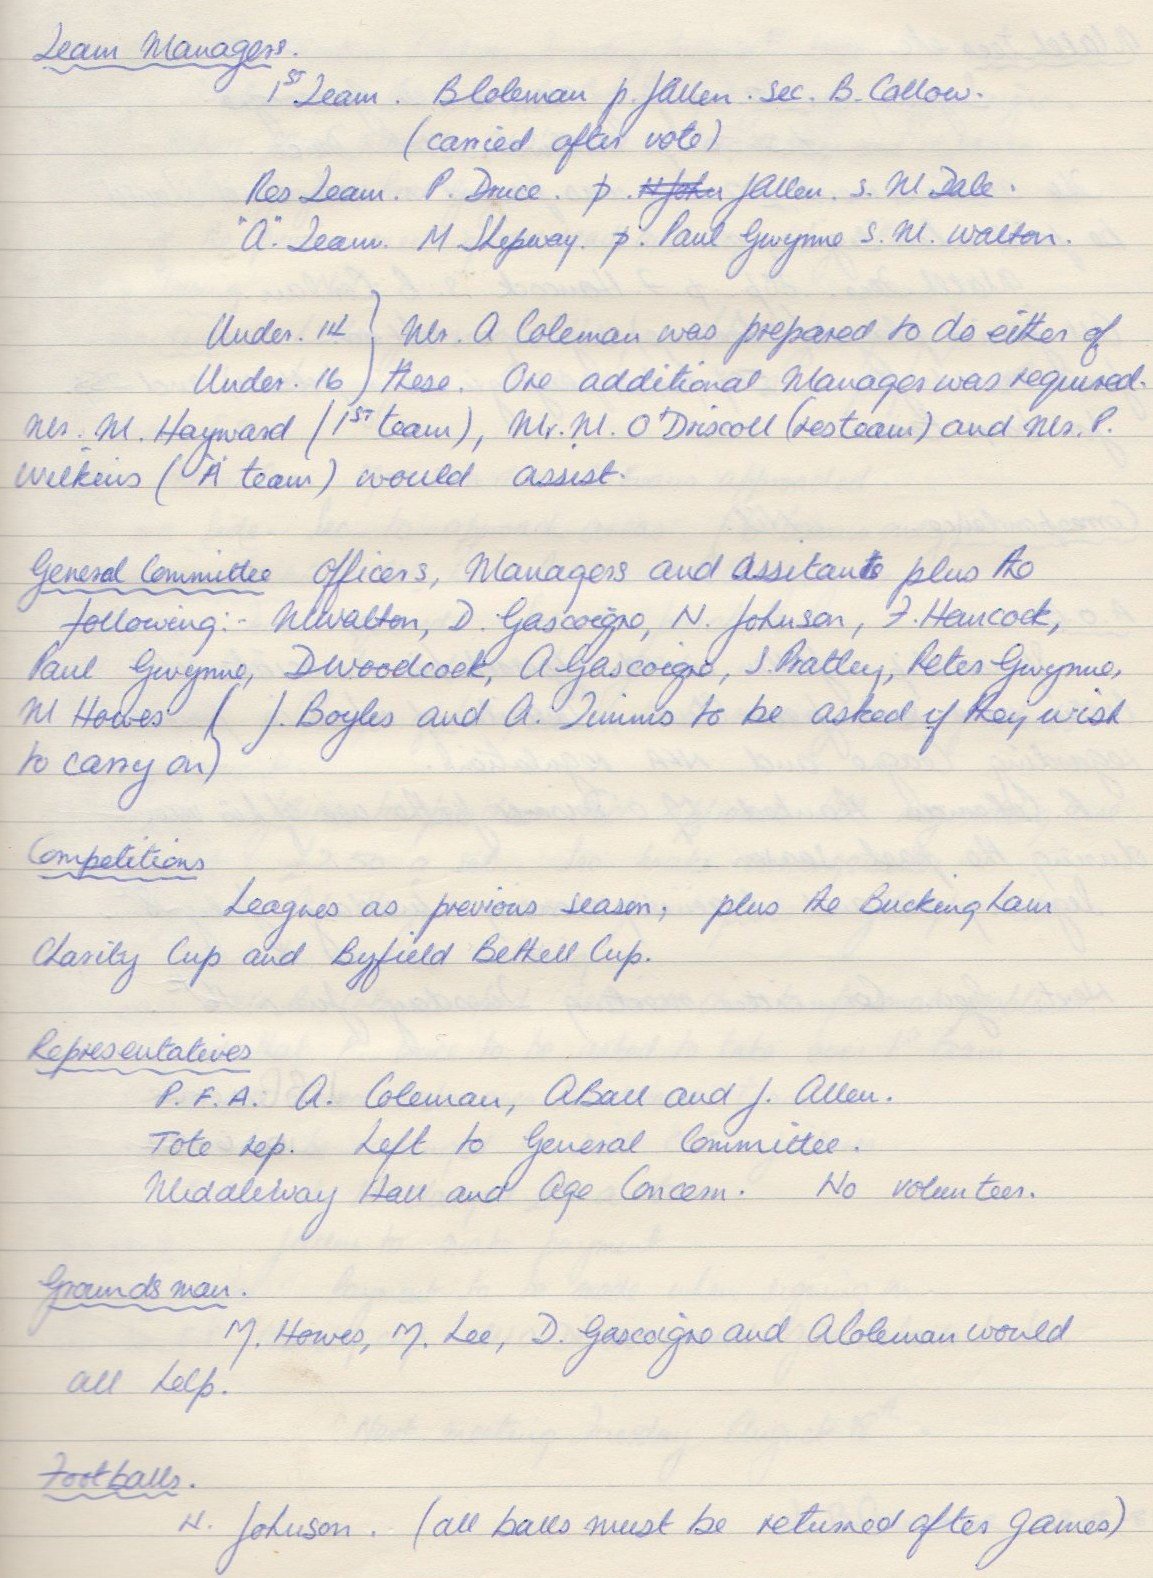 Team Managers.
1ST Team. B Coleman p. J Allen. sec. B. Callow.
(carried after vote)
Res Team. P. Druce. p. N John J Allen. s. M Dale.
"A". Team. M Shepway. p. Paul Gwynne s. M. Walton.
Under. 14 } Mr. A Coleman was prepared to do either of
Under. 16 } these. One additional Manager was required.
Mr. M. Hayward (1ST team), Mr. M. O'Driscoll (res team) and Mr. P.
Wilkins ("A" team) would assist.
General Committee Officers, Managers and Assitants plus the
following:- M Walton, D. Gascoigne, N. Johnson, F. Hancock,
Paul Gwynne, D Woodcock, A Gascoigne, S. Pratley, Peter Gwynne,
M Howes ( J. Boyles and A. Timms to be asked if they wish
to carry on)
Competitions
Leagues as previous season; plus the Buckingham
Charity Cup and Byfield Bethell Cup.
Representatives
P.F.A. A. Coleman, A Ball and J. Allen.
Tote rep. Left to General Committee.
Middleway Hall and Age Concern. No volunteer.
Groundsman.
M. Howes, M. Lee, D. Gascoigne and A Coleman would
all help.
Footballs.
N. Johnson. (all balls must be returned after games)